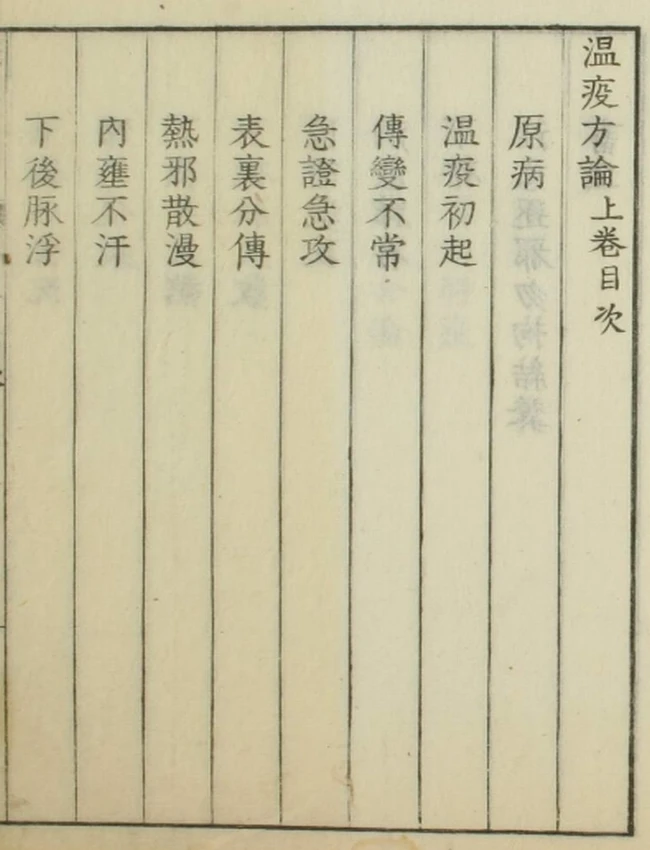 温疫方論上卷目次
原病
温疫初起
傳變不常
急證急攻
表裏分傳
熱邪散漫
內壅不汗
下後脉浮